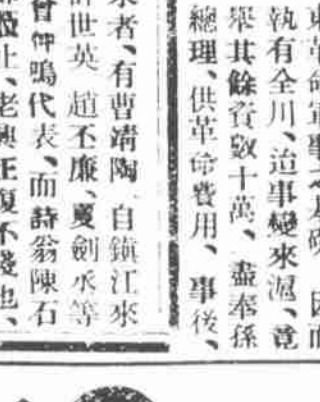 東革命軍事之基礎、因而
執有全川、迨事變來滬、竟
舉其餘資數十萬、盡奉孫
總理、供革命費用、事後、
來者、有曹靖陶、自鎭江來
許世英、趙丕廉、夏劍丞等
曾仲鳴代表、而詩翁陳石
止、老興正復不淺也、